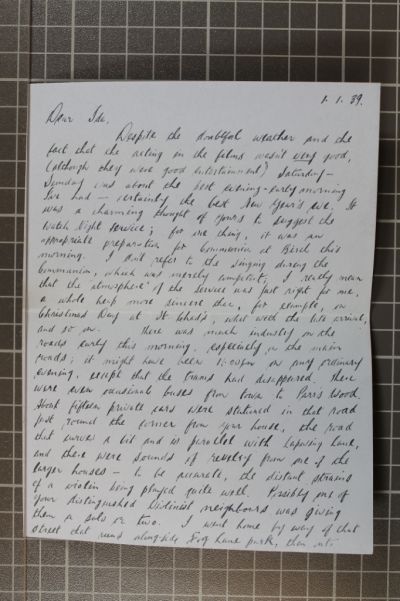 1. 1. 39.
Dear Ida,
Despite the doubtful weather and the
fact that the acting in the films wasn't very good,
(although they were good entertainment) Saturday-
Sunday was about the best evening-early morning
I've had — certainly the best New Year's eve. It
was a charming thought of yours to suggest the
Watch Night service; for one thing, it was an
appropriate preparation for Communion at Birch this
morning. I don't refer to the singing during the
Communion, which was merely competent; I really mean
that the atmosphere of the service was just right for me,
a whole heap more sincere than, for example, on
Christmas Day at St. Chad's, what with the late arrival,
and so on. There was much industry on the
roads early this morning, especially on the main
roads; it might have been 11.0 pm on any ordinary
evening, except that the trams had disappeared. There
were even occasional buses from town to Parrs Wood.
About fifteen private cars were stationed in that road
just round the corner from your house, the road
that curves a bit and is parallel with Lapwing Lane,
and there were sounds of revelry from one of the
larger houses — to be accurate, the distant strains
of a violin being played quite well. Possibly one of
your distinguished neighbours was giving
them a solo or two. I went home by way of that
street that runs alongside Fog Lane park, then into